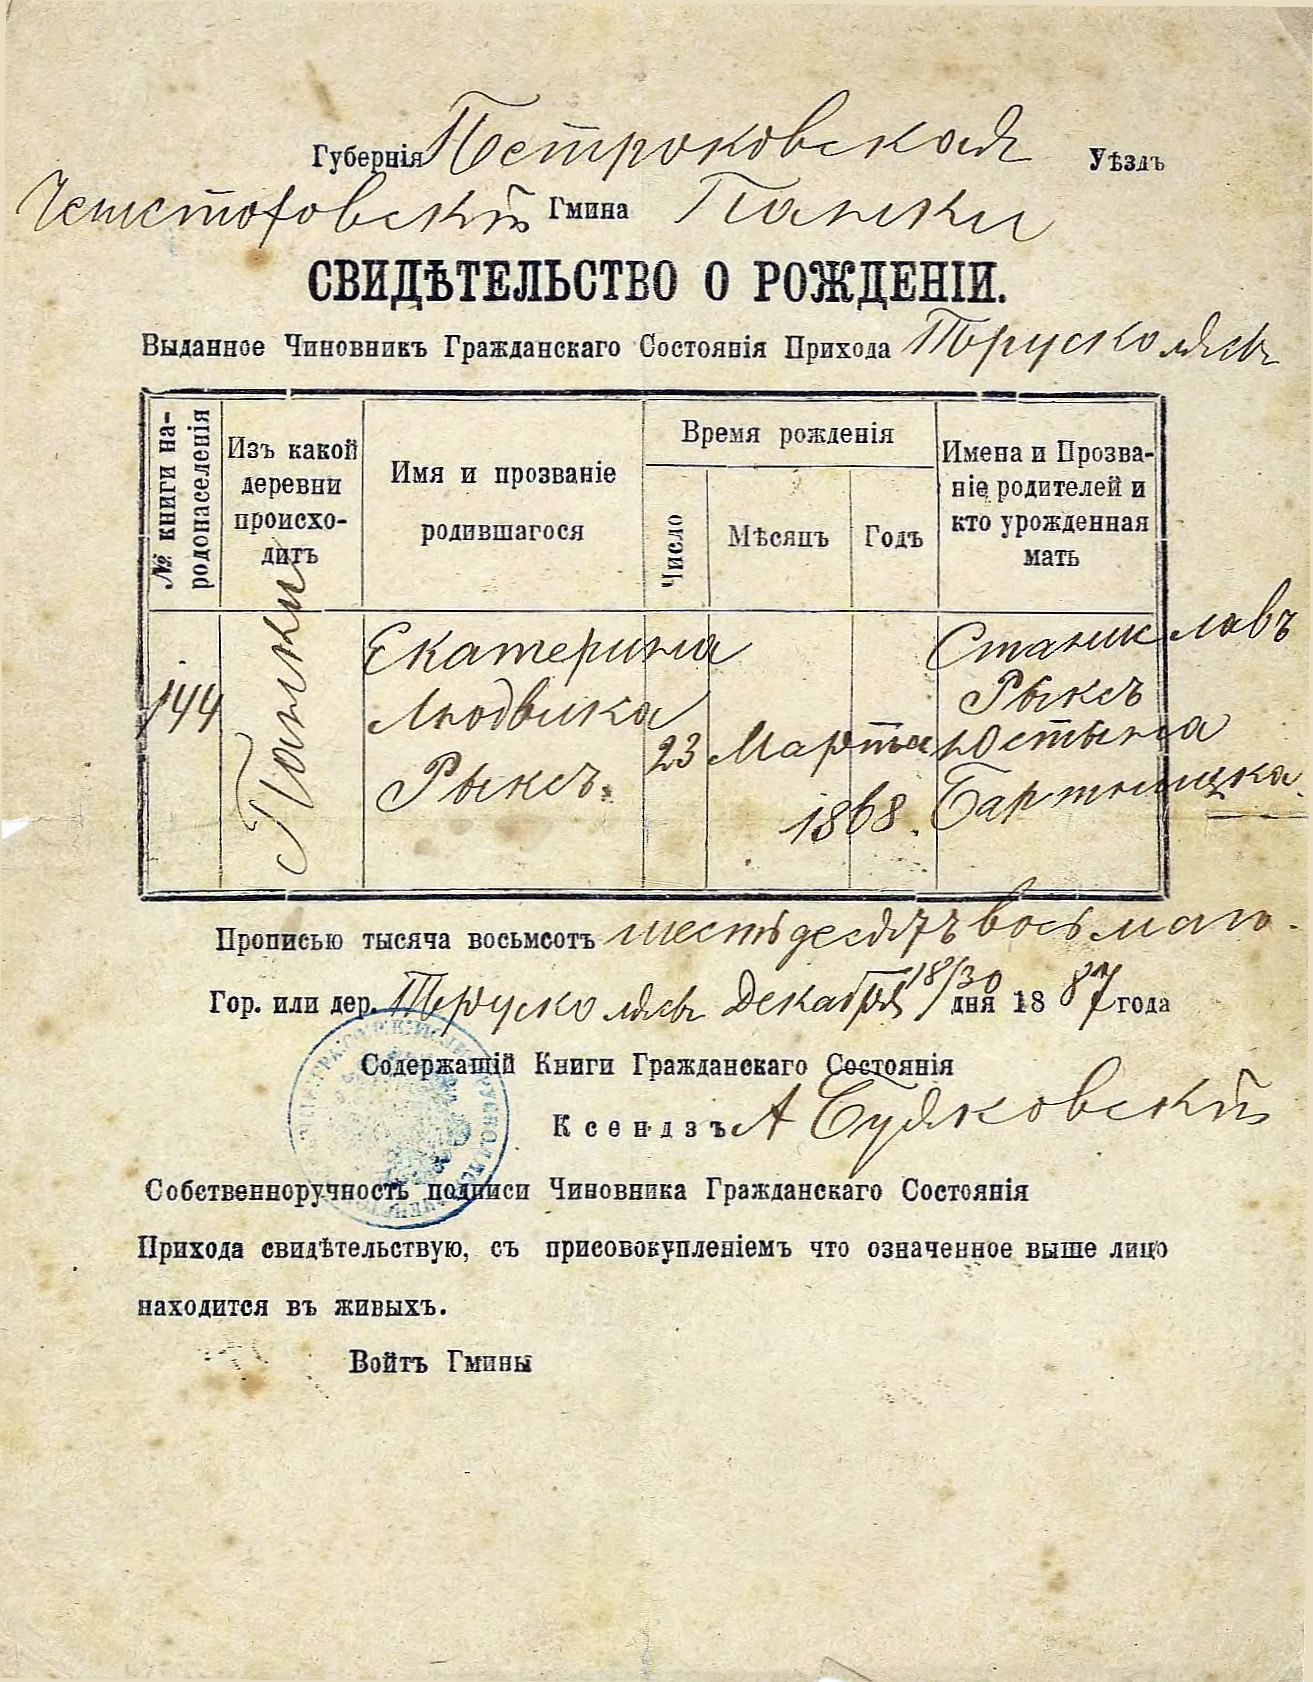 Губернія Петроковская Уѣздъ
Ченстоховскій Гмина Панки
СВИДѢТЕЛЬСТВО О РОЖДЕНІИ.
Выданное Чиновникъ Гражданскаго Состоянія Прихода Трусколясы
№ книги на-
родонаселенія
Изъ какой
деревни
происхо-
дитъ
Имя и прозваніе
родившагося
Время рожденія
Число
Мѣсяцъ
Годъ
Имена и Прозва-
ніе родителей и
кто урожденная
мать
144
Панки
Екатерина
Людвика
Рыксъ.
23
Марта
1868.
Станиславъ
Рыксъ
Юстына
Бартницка.
Прописью тысяча восьмсотъ шестьдесятъ восьмаго.
Гор. или дер. Трусколясы Декабря 18/30 дня 1887 года
Содержащій Книги Гражданскаго Состоянія
Ксендзъ А
Собственноручность подписи Чиновника Гражданскаго Состоянія
Прихода свидѣтельствую, съ присовокупленіемъ что означенное выше лицо
находится въ живыхъ.
Войтъ Гмины